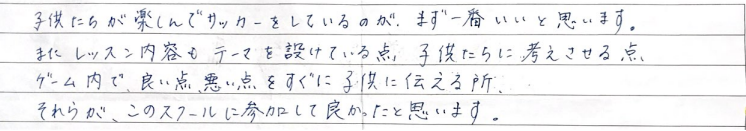 子供たちが楽しんでサッカーをしているのが、まず一番いいと思います。
またレッスン内容もテーマを設けている点、子供たちに考えさせる点、
ゲーム内で、良い点、悪い点をすぐに子供に伝える所、
それらが、このスクールに参加して良かったと思います。